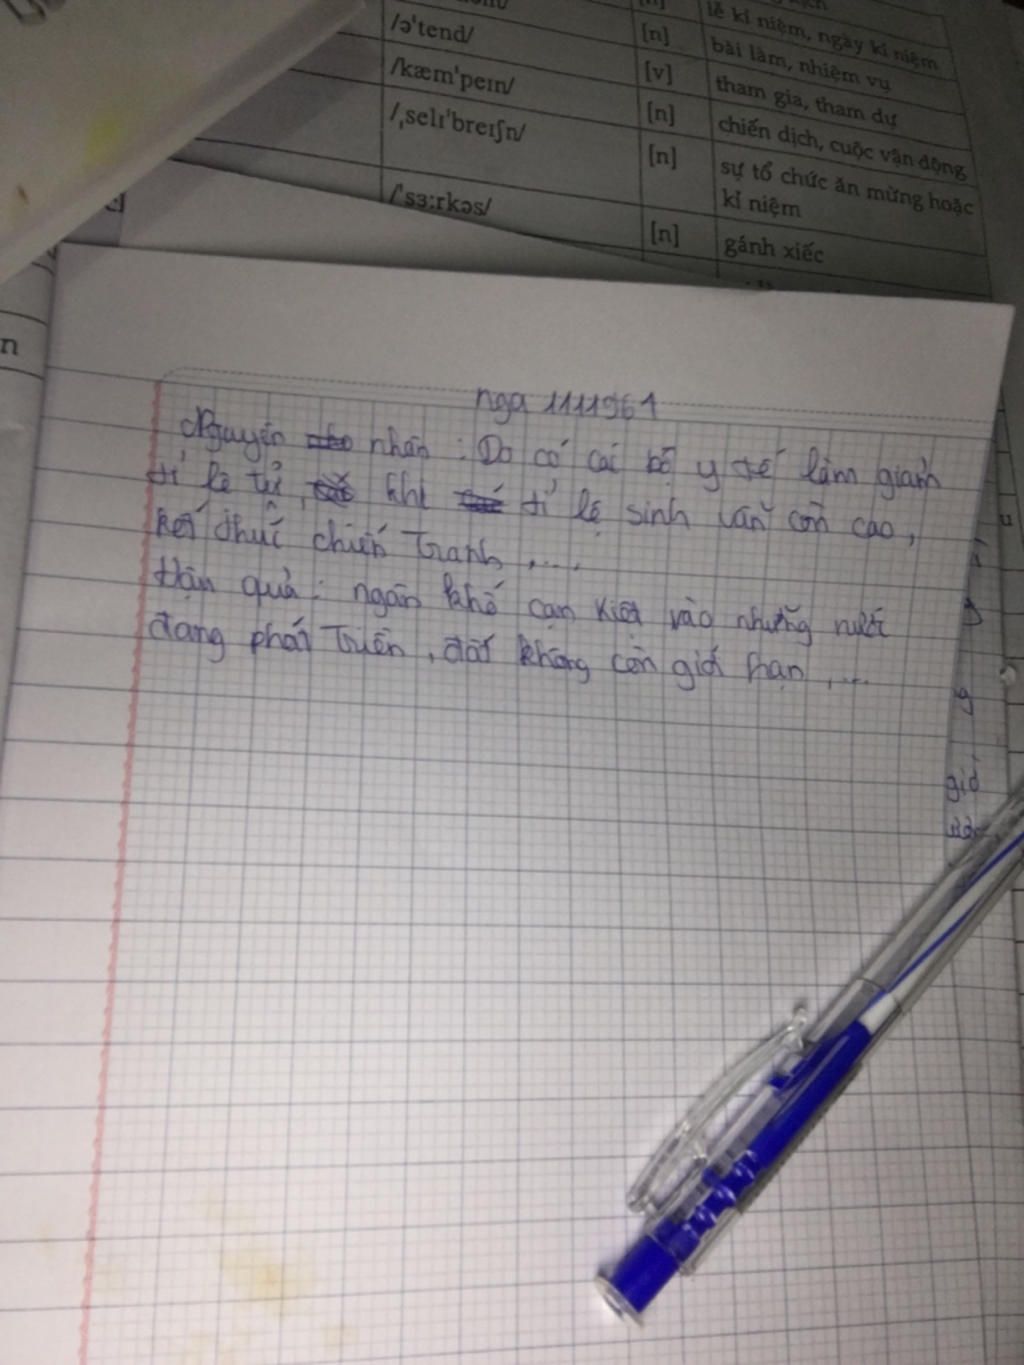 /əˈtend/
/kæmˈpeɪn/
/ˌselɪˈbreɪʃn/
/ˈsɜːrkəs/
[n]
[v]
[n]
[n]
[n]
lễ kỉ niệm, ngày kỉ niệm
bài làm, nhiệm vụ
tham gia, tham dự
chiến dịch, cuộc vận động
sự tổ chức ăn mừng hoặc
kỉ niệm
gánh xiếc
n
nga 1111961
Nguyên nhân : Do có các bộ y tế làm giảm
tỉ lệ tử, khi tỉ lệ sinh vẫn còn cao,
kết thúc chiến tranh,....
Hậu quả : ngân khố cạn kiệt vào những nước
đang phát triển, đất không còn giới hạn,...
g
giờ